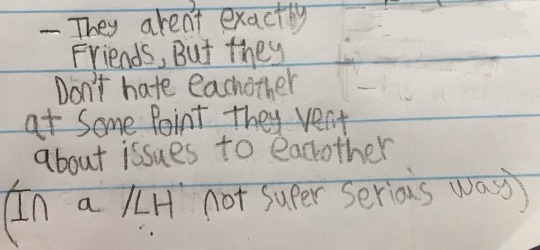 - They aren't exactly
Friends, But they
Don't hate eachother
at some point they vent
about issues to eachother
(In a /LH not super serious way)